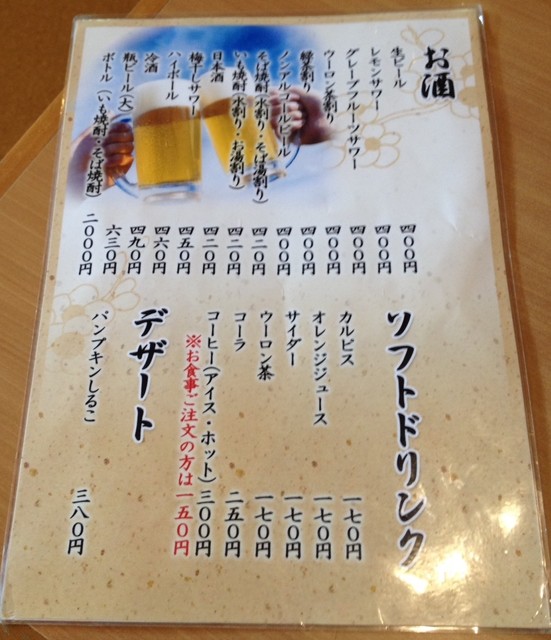 お酒
生ビール 四〇〇円
レモンサワー 四〇〇円
グレープフルーツサワー 四〇〇円
ウーロン茶割り 四〇〇円
緑茶割り 四〇〇円
ノンアルコールビール 四〇〇円
そば焼酎(水割り・そば湯割り) 四二〇円
いも焼酎(水割り・お湯割り) 四二〇円
日本酒 四二〇円
梅干しサワー 四五〇円
ハイボール 四六〇円
冷酒 四九〇円
瓶ビール(大) 六三〇円
ボトル(いも焼酎・そば焼酎) 二〇〇〇円
ソフトドリンク
カルピス 一七〇円
オレンジジュース 一七〇円
サイダー 一七〇円
ウーロン茶 一七〇円
コーラ 二五〇円
コーヒー(アイス・ホット) 三〇〇円
※お食事ご注文の方は一五〇円
デザート
パンプキンしるこ 三八〇円